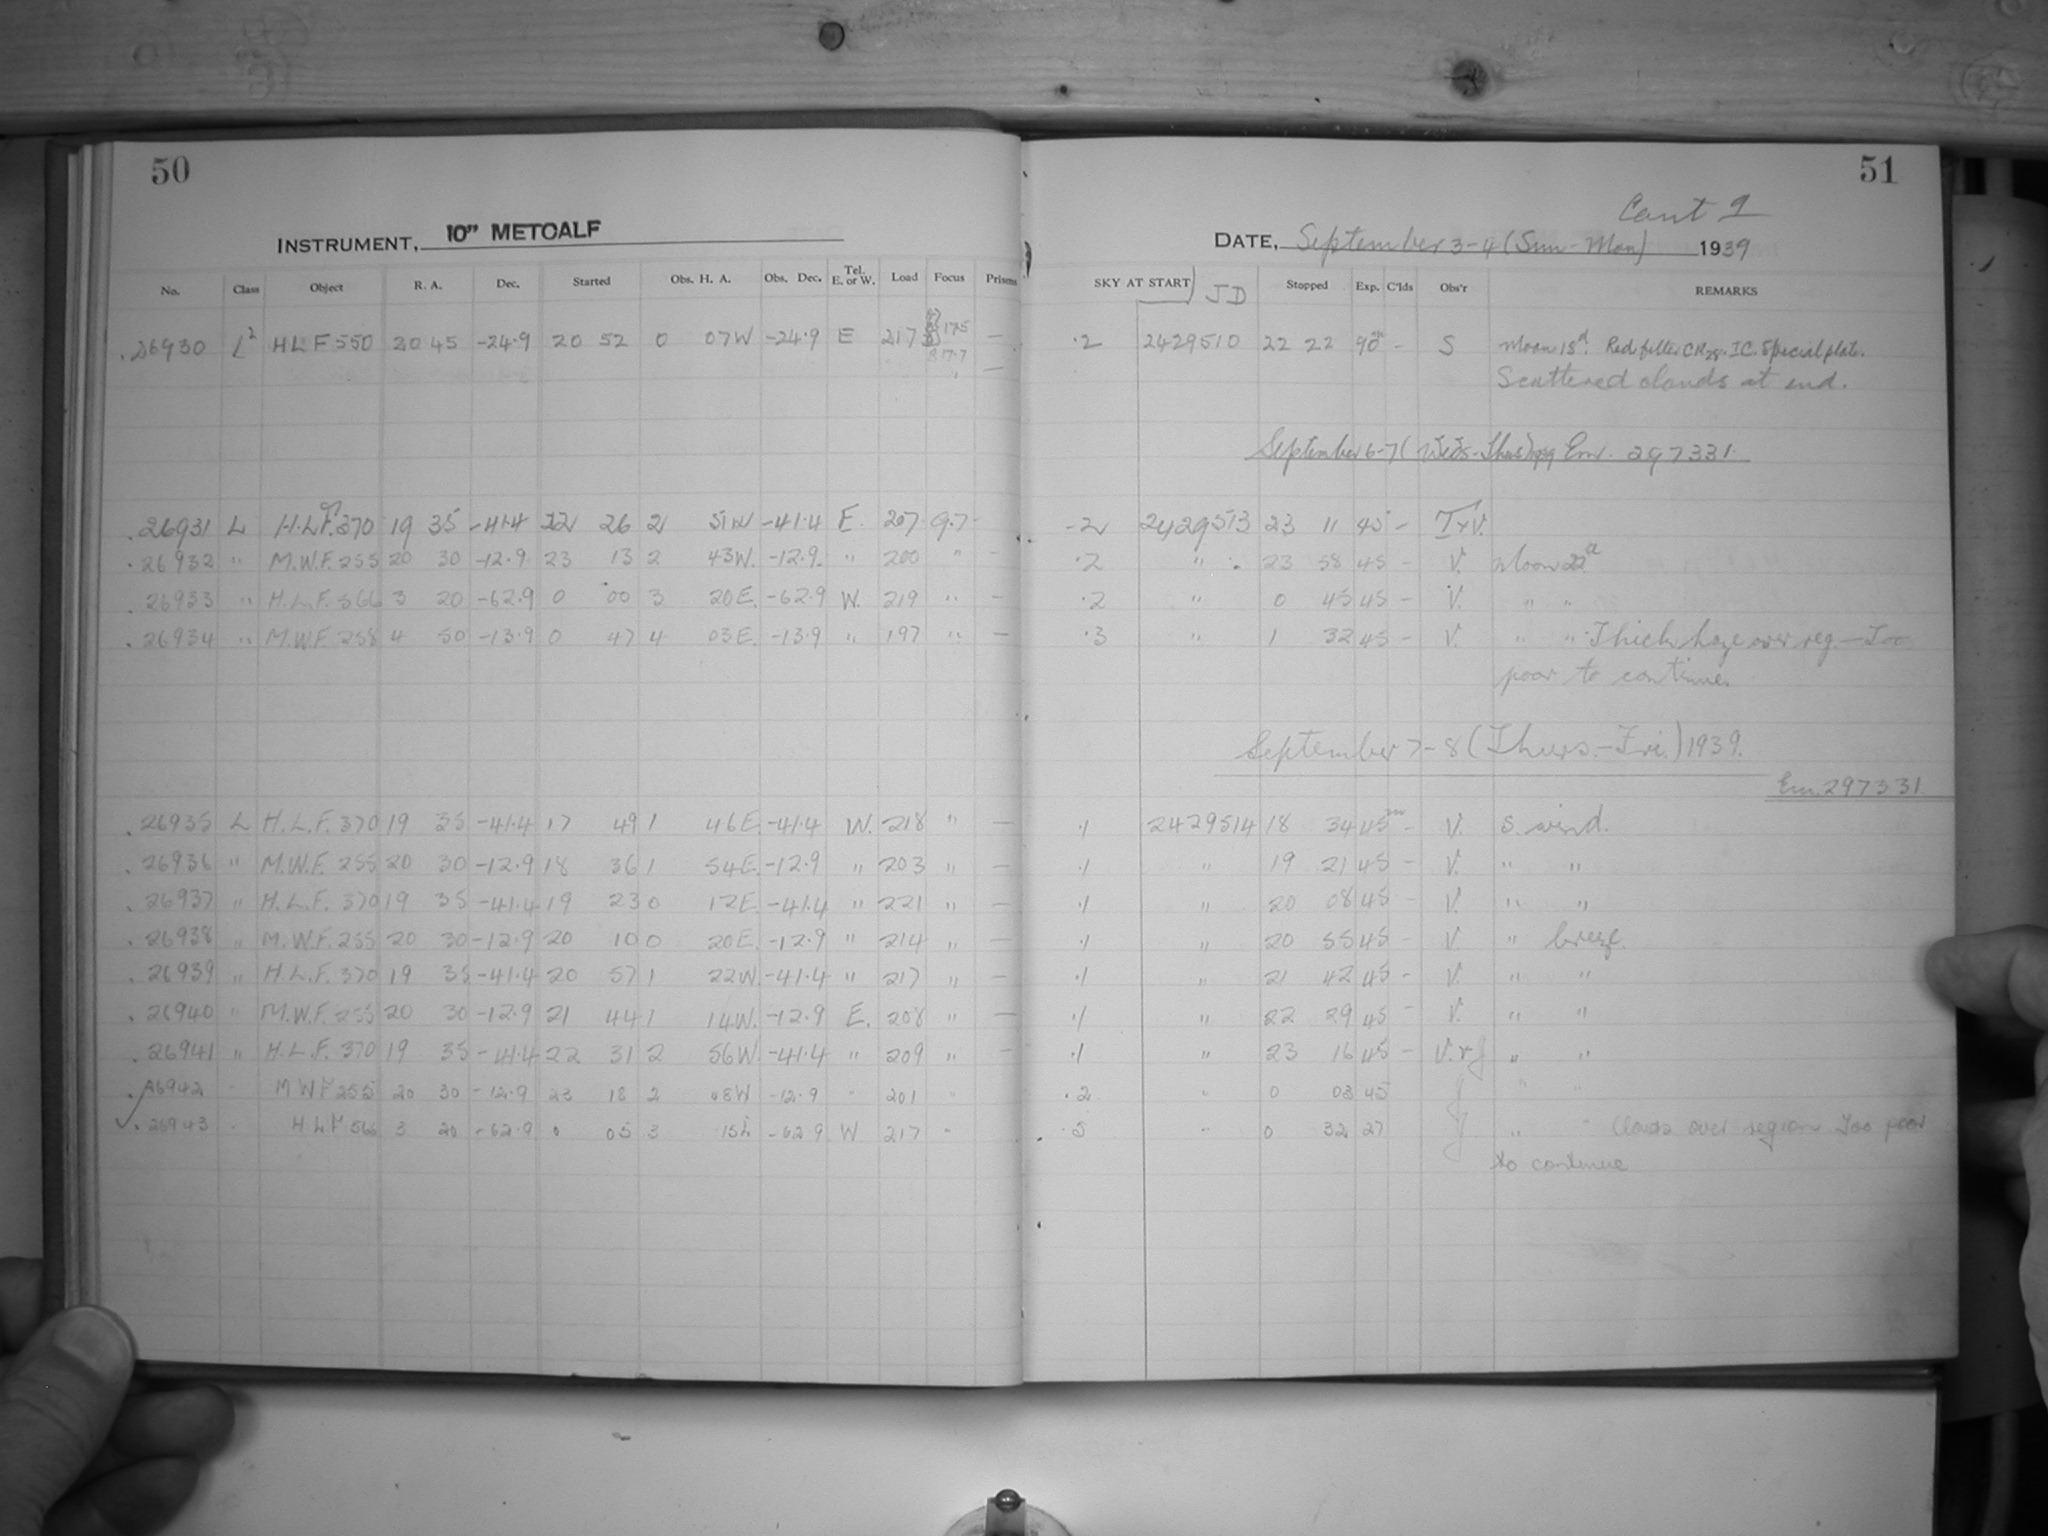 50
INSTRUMENT, 10" METCALF
No. Class Object R. A. Dec. Started Obs. H. A. Obs. Dec. Tel. E. or W. Load Focus Prisms
26930 L2 HLF 550 20 45 -24.9 20 52 0 07W -24.9 E 217 17.5 —
17.7 —
26931 L H.L.F. 370 19 35 -41.4 22 26 2 51W -41.4 E. 207 9.7 -
26932 " M.W.F. 255 20 30 -12.9 23 13 2 43W. -12.9. " 200 " -
26933 " H.L.F. 566 3 20 -62.9 0 00 3 20E. -62.9 W. 219 " -
26934 " M.W.F. 258 4 50 -13.9 0 47 4 03E. -13.9 " 197 " —
26935 L H.L.F. 370 19 35 -41.4 17 49 1 46E. -41.4 W. 218 " —
26936 " M.W.F. 255 20 30 -12.9 18 36 1 54E. -12.9 " 203 " —
26937 " H.L.F. 370 19 35 -41.4 19 23 0 12E. -41.4 " 221 " —
26938 " M.W.F. 255 20 30 -12.9 20 10 0 20E. -12.9 " 214 " —
26939 " H.L.F. 370 19 35 -41.4 20 57 1 22W. -41.4 " 217 " —
26940 " M.W.F. 255 20 30 -12.9 21 44 1 14W. -12.9 E. 208 " —
26941 " H.L.F. 370 19 35 -41.4 22 31 2 56W. -41.4 " 209 " —
26942 " M W F 255 20 30 -12.9 23 18 2 08W -12.9 " 201 "
26943 " H L F 566 3 20 -62.9 0 05 3 15E -62.9 W 217 "
51
Cont 9
DATE, September 3-4 (Sun-Mon) 1939
SKY AT START JD Stopped Exp. C'lds Obs'r REMARKS
.2 2429510 22 22 90m - S Moon 19d. Red filter IC. Special plate.
Scattered clouds at end.
September 6-7 (Weds-Thurs) 1939 Em. 297331.
.2 2429513 23 11 45 - T+V.
.2 " 23 58 45 - V. Moon 22d
.2 " 0 45 45 - V. " "
.3 " 1 32 45 - V. " " Thick haze over reg.—Too
poor to continue.
September 7-8 (Thurs.-Fri.) 1939.
Em. 297331
.1 2429514 18 34 45m - V. S. wind.
.1 " 19 21 45 - V. " "
.1 " 20 08 45 - V. " "
.1 " 20 55 45 - V. " breeze.
.1 " 21 42 45 - V. " "
.1 " 22 29 45 - V. " "
.1 " 23 16 45 - V. + J " "
.2 " 0 03 45 J " "
.5 " 0 32 27 J " " Clouds over region Too poor
to continue